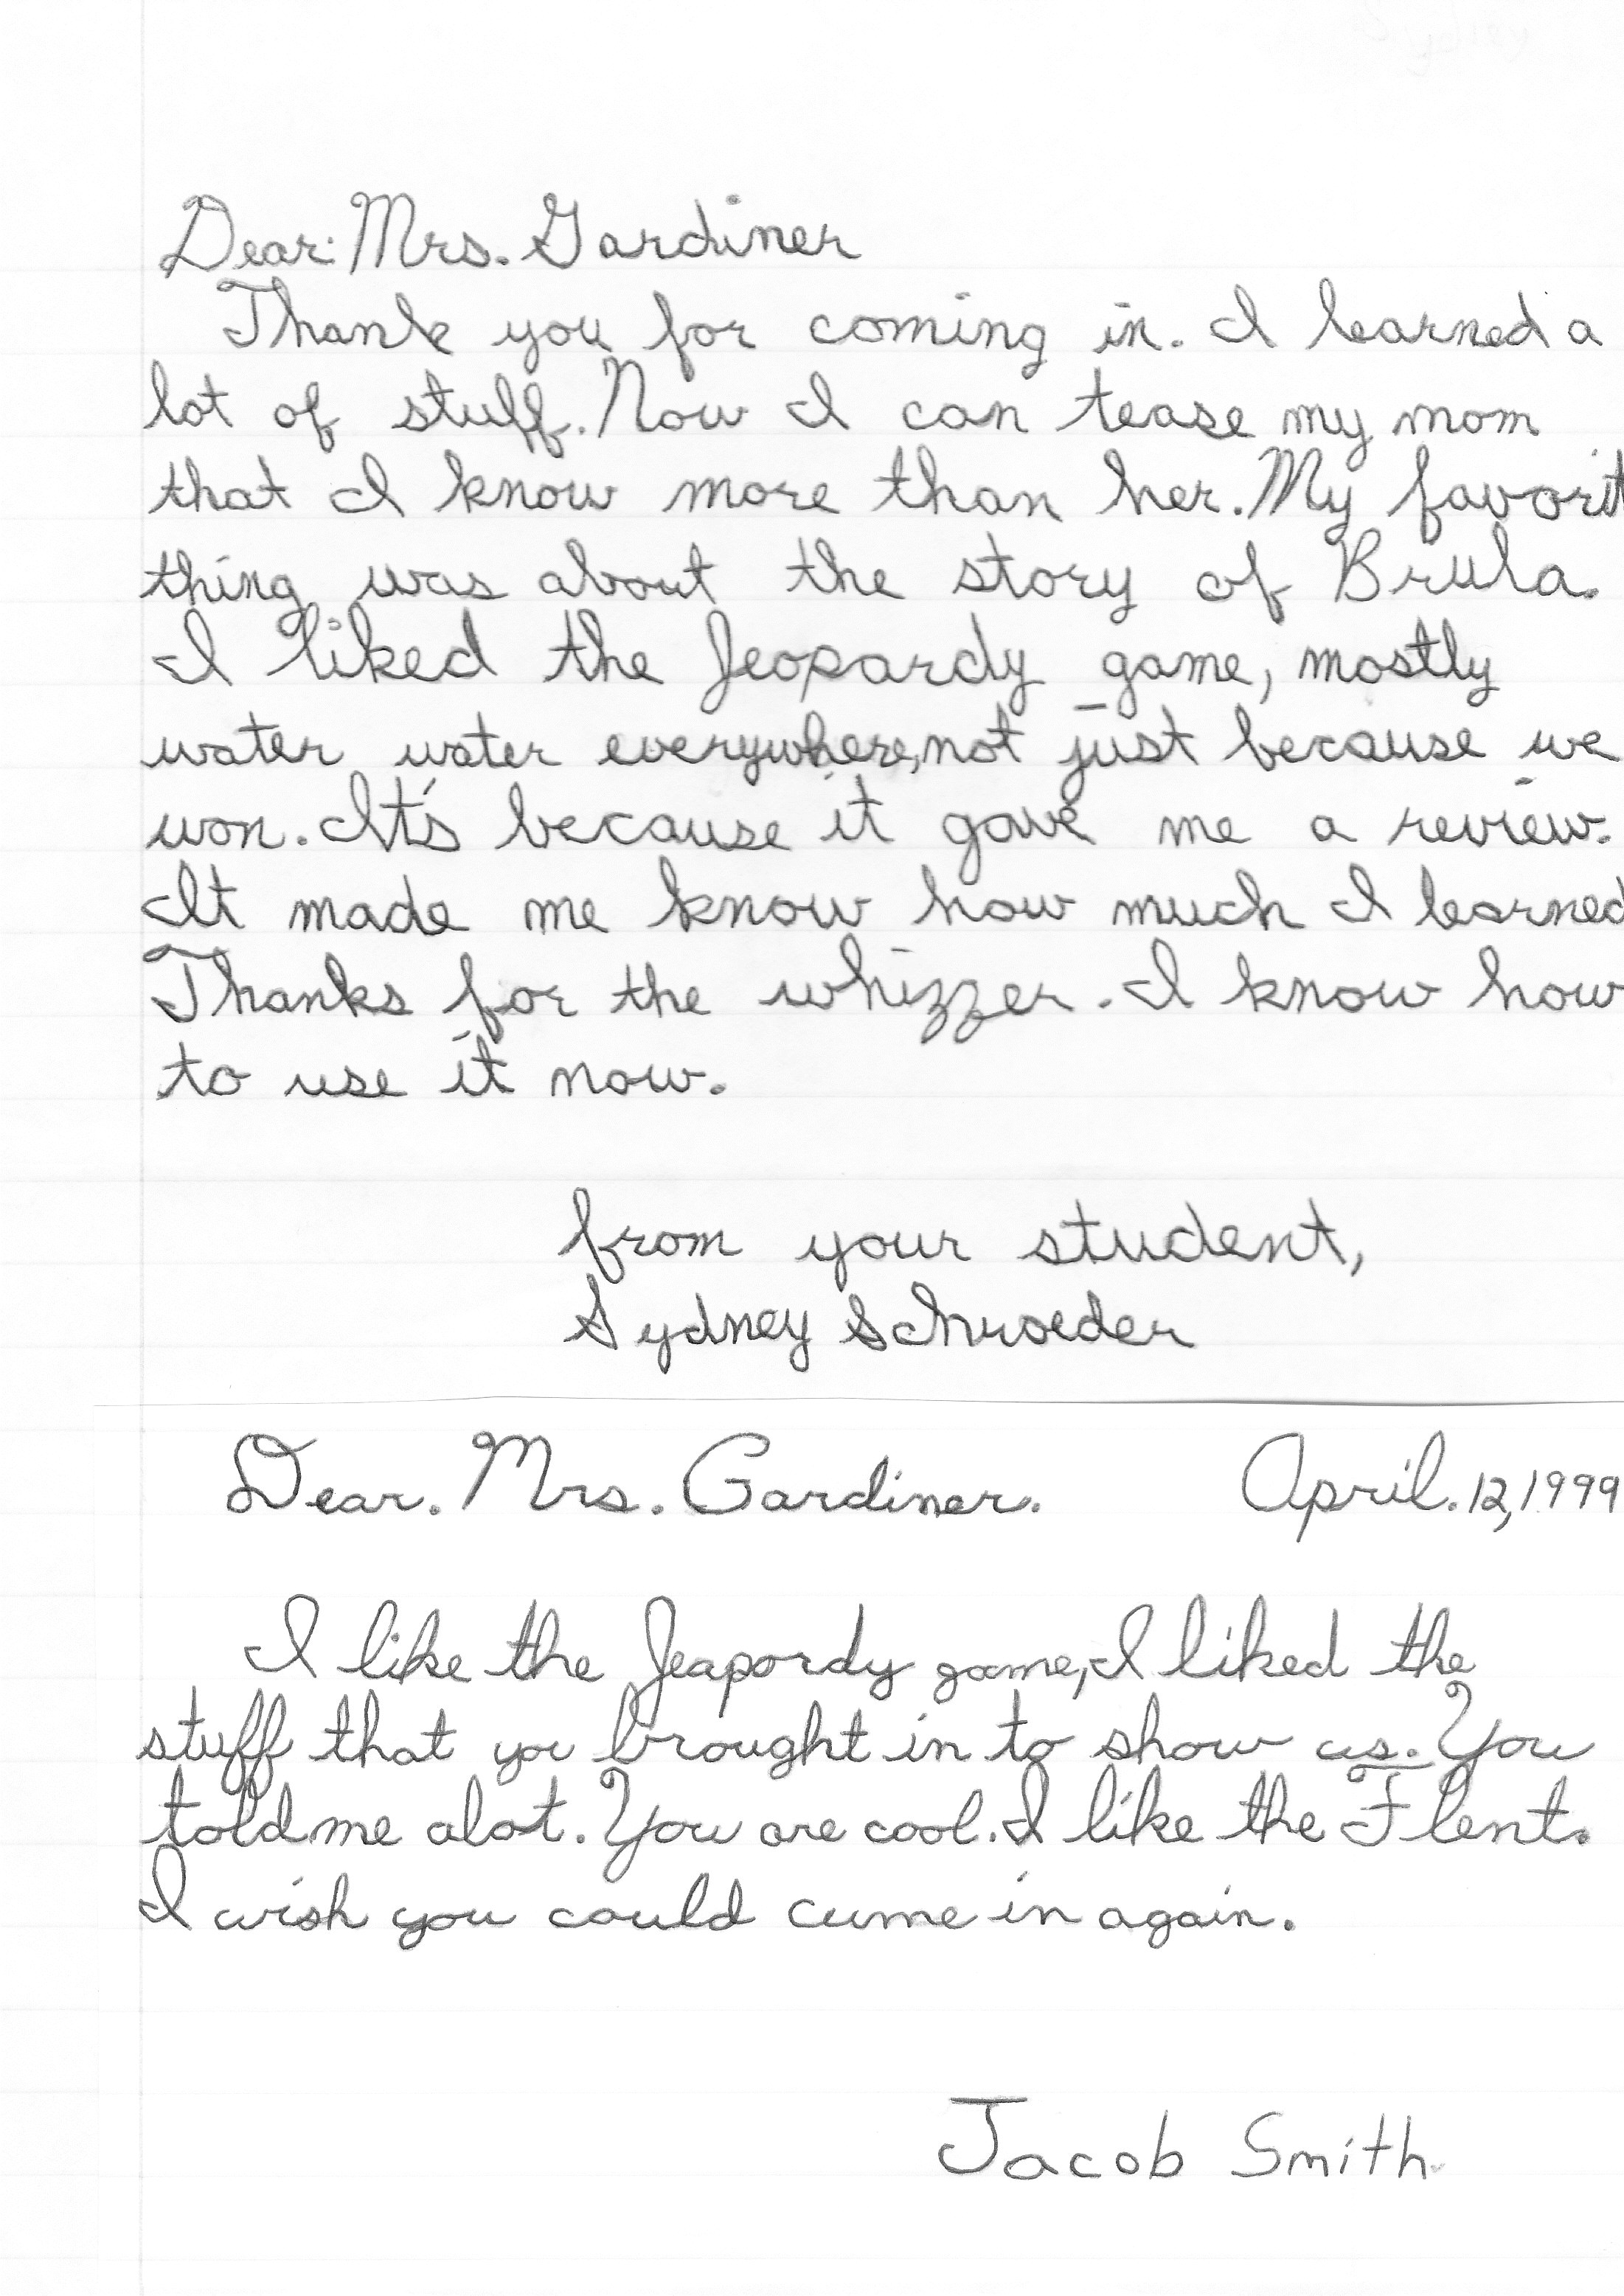 Sydney
Dear: Mrs. Gardiner
Thank you for coming in. I learned a
lot of stuff. Now I can tease my mom
that I know more than her. My favorit
thing was about the story of Brula.
I liked the Jeopardy game, mostly
water water everywhere, not just because we
won. It's because it gave me a review.
It made me know how much I learned
Thanks for the whizzer. I know how
to use it now.
from your student,
Sydney Schroeder
Dear. Mrs. Gardiner. April. 12, 1999
I like the Jeapordy game, I liked the
stuff that you brought in to show us. You
told me alot. You are cool. I like the Flent.
I wish you could cume in again.
Jacob Smith